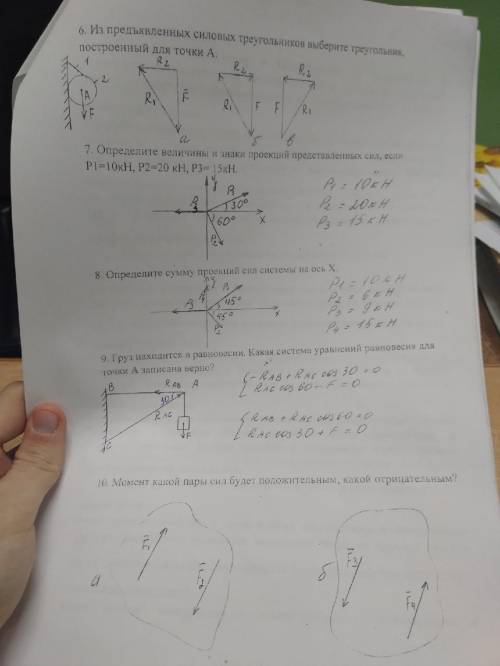 6. Из предъявленных силовых треугольников выберите треугольник,
построенный для точки А.
1
2
A
F
R2
R1
F̄
а
R2
R1
F
б
R2
F
R1
в
7. Определите величины и знаки проекций представленных сил, если
P1=10кН, P2=20 кН, P3= 15кН.
y
P1
30°
P3
60°
P2
X
P1 = 10кН
P2 = 20кН
P3 = 15кН
8. Определите сумму проекций сил системы на ось X.
P1
P3
45°
45°
P2
x
P1 = 10кН
P2 = 6кН
P3 = 9кН
P4 = 15кН
9. Груз находится в равновесии. Какая система уравнений равновесия для
точки А записана верно?
B
RAB
A
30°
RAC
F
C
-RAB + RAC cos 30 = 0
RAC cos 60 - F = 0
RAB + RAC cos 60 = 0
RAC cos 30 + F = 0
10. Момент какой пары сил будет положительным, какой отрицательным?
F̄1
F̄2
а
F̄3
F̄4
б